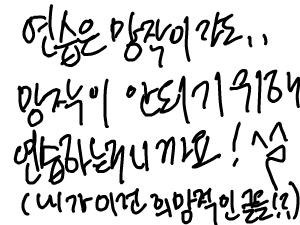 연습은 망작이라도..
망작이 안되기 위해
연습하는거니까요! ^^
(내가 이전 희망적인 글을!?)